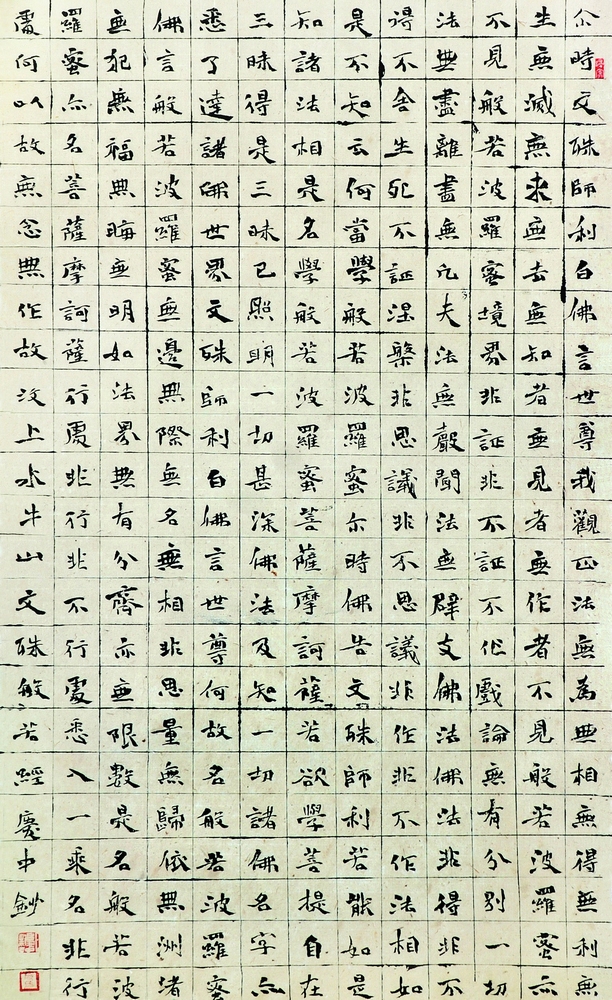 尒時文殊師利白佛言世尊我觀正法無為無相無得無利無
生無滅無來無去無知者無見者無作者不見般若波羅蜜亦
不見般若波羅蜜境界非証非不証不作戲論無有分別一切
法無盡離盡無凡夫法無聲聞法無辟支佛法佛法非得非不
得不舍生死不証涅槃非思議非不思議非作非不作法相如
是不知云何當學般若波羅蜜尒時佛告文殊師利若能如是
知諸法相是名學般若波羅蜜菩薩摩訶薩若欲學菩提自在
三昧得是三昧已照明一切甚深佛法及知一切諸佛名字亦
悉了達諸佛世界文殊師利白佛言世尊何故名般若波羅蜜
佛言般若波羅蜜無邊無際無名無相非思量無歸依無洲渚
無犯無福無晦無明如法界無有分齊亦無限數是名般若波
羅蜜亦名菩薩摩訶薩行處非行非不行處悉入一乘名非行
處何以故無念無作故汶上水牛山文殊般若經慶中鈔